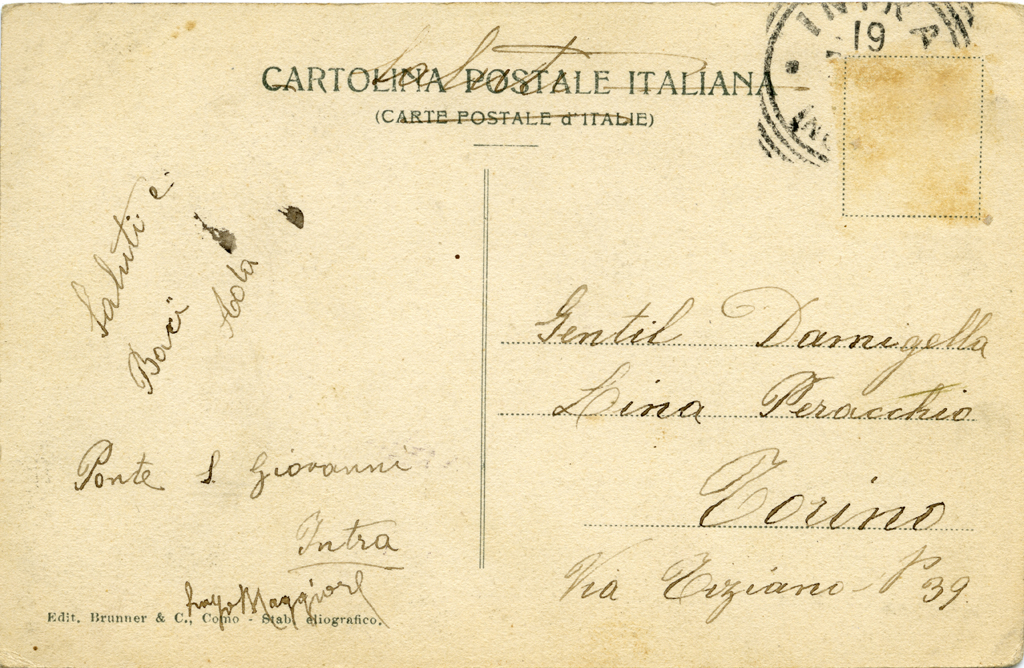 CARTOLINA POSTALE ITALIANA
(CARTE POSTALE d'ITALIE)
INTRA
19
Saluti e
Baci
Ponte S. Giovanni
Intra
Lago Maggiore
Edit. Brunner & C., Como - Stab. eliografico.
Gentil Damigella
Lina Peracchio
Torino
Via Tiziano - N° 39